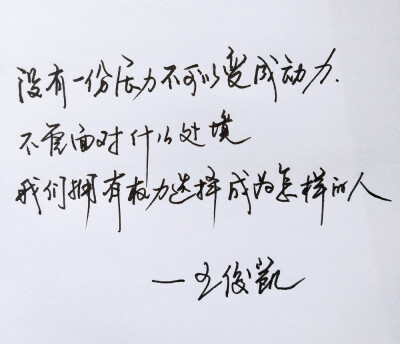 没有一份活力不可以变成动力.
不管面对什么处境
我们拥有权力选择成为怎样的人
—王俊凯